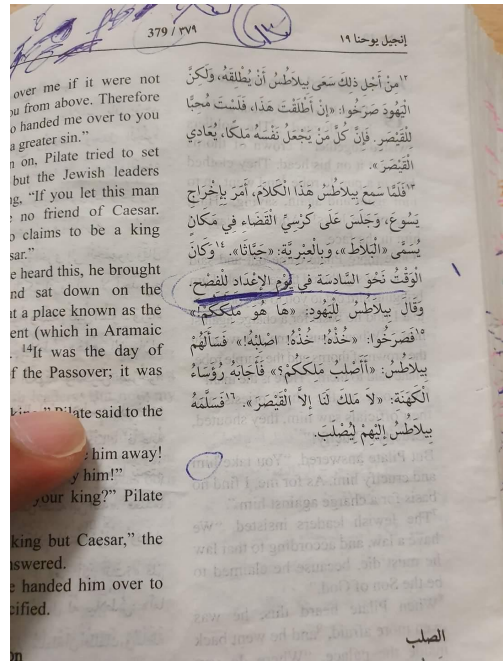 379 / ٣٧٩
إنجيل يوحنا ١٩
over me if it were not
you from above. Therefore
handed me over to you
a greater sin."
on, Pilate tried to set
but the Jewish leaders
"If you let this man
no friend of Caesar.
claims to be a king
heard this, he brought
and sat down on the
at a place known as the
(which in Aramaic
¹⁴It was the day of
of the Passover; it was
Pilate said to the
him away!
him!"
your king?" Pilate
king but Caesar," the
answered.
handed him over to
١٢مِنْ أَجْلِ ذلِكَ سَعَى بِيلَاطُسُ أَنْ يُطْلِقَهُ، وَلَكِنَّ
الْيَهُودَ صَرَخُوا: «إِنْ أَطْلَقْتَ هَذَا، فَلَسْتَ مُحِبًّا
لِلْقَيْصَرِ. فَإِنَّ كُلَّ مَنْ يَجْعَلُ نَفْسَهُ مَلِكًا، يُعَادِي
الْقَيْصَرَ».
١٣فَلَمَّا سَمِعَ بِيلَاطُسُ هَذَا الْكَلَامَ، أَمَرَ بِإِخْرَاجِ
يَسُوعَ، وَجَلَسَ عَلَى كُرْسِيِّ الْقَضَاءِ فِي مَكَانٍ
يُسَمَّى «الْبَلَاطَ»، وَبِالْعِبْرِيَّةِ: «جَبَّاثَا». ١٤وَكَانَ
الْوَقْتُ نَحْوَ السَّادِسَةِ فِي يَوْمِ الإِعْدَادِ لِلْفِصْحِ.
وَقَالَ بِيلَاطُسُ لِلْيَهُودِ: «هَا هُوَ مَلِكُكُمْ!»
١٥فَصَرَخُوا: «خُذْهُ! خُذْهُ! اصْلِبْهُ!» فَسَأَلَهُمْ
بِيلَاطُسُ: «أَأَصْلِبُ مَلِكَكُمْ؟» فَأَجَابَهُ رُؤَسَاءُ
الْكَهَنَةِ: «لَا مَلِكَ لَنَا إِلَّا الْقَيْصَرُ». ١٦فَسَلَّمَهُ
بِيلَاطُسُ إِلَيْهِمْ لِيُصْلَبَ.
الصلب